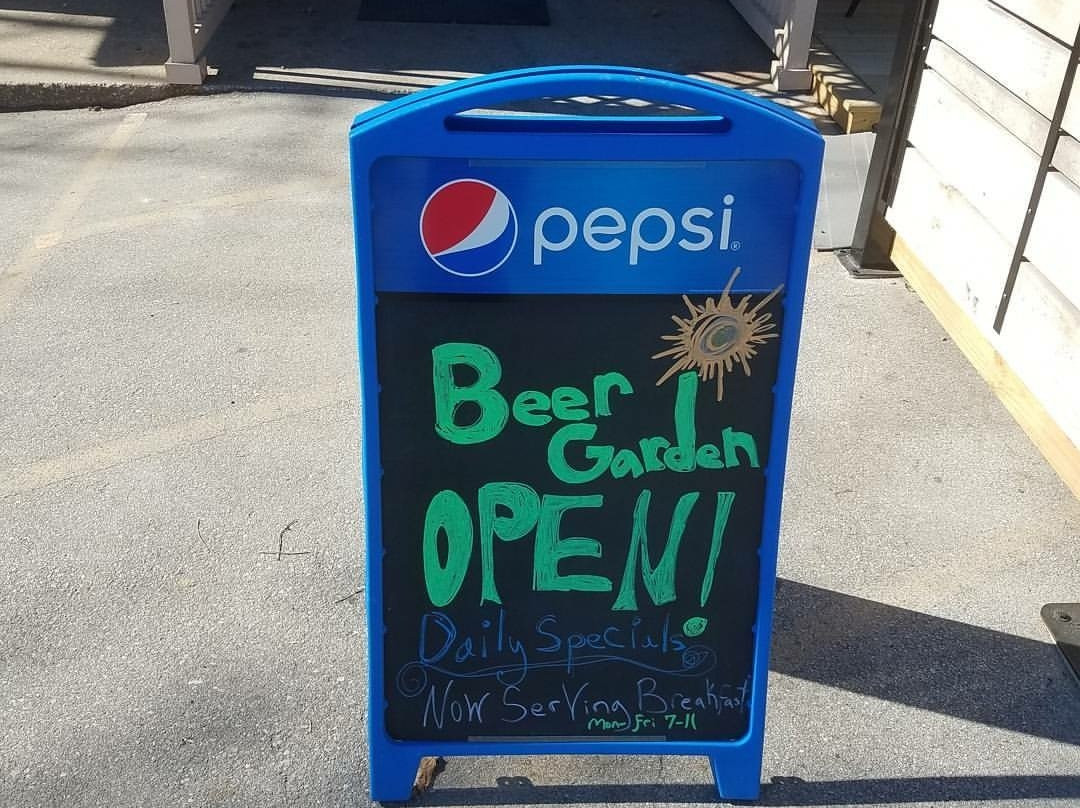 pepsi®
Beer
Garden
OPEN!
Daily Specials
Now Serving Breakfast
Mon-Fri 7-11